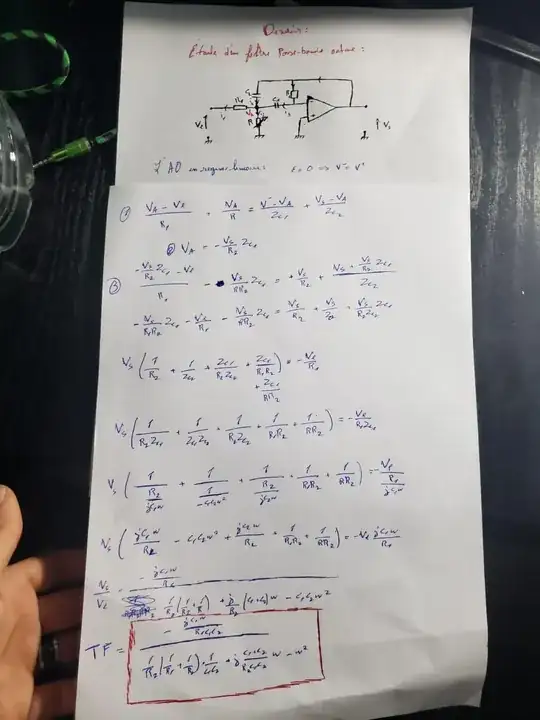 Dessin:
Étude d'un filtre Passe-bande actove:
L'AO en regime lineaire: E=0 => V⁻ = V⁺
① (VA - Ve)/R1 + VA/R = (V⁻ - VA)/Zc1 + (Vs - VA)/Zc2
② VA = - Vs/R2 Zc1
③ (-Vs/R2 Zc1 - Ve)/R1 - Vs/RR2 Zc1 = + Vs/R2 + (Vs + Vs/R2 Zc1)/Zc2
- Vs/R1R2 Zc1 - Ve/R1 - Vs/RR2 Zc1 = Vs/R2 + Vs/Zc2 + Vs/R2Zc2 Zc1
Vs ( 1/R2 + 1/Zc2 + Zc1/R2Zc2 + Zc1/R1R2 + Zc1/RR2 ) = - Ve/R1
Vs ( 1/R2Zc1 + 1/Zc1Zc2 + 1/R2Zc2 + 1/R1R2 + 1/RR2 ) = - Ve/R1Zc1
Vs ( 1/(R2/jC1w) + 1/(1/-C1C2w²) + 1/(R2/jC2w) + 1/R1R2 + 1/RR2 ) = - Ve/(R1/jC1w)
Vs ( jC1w/R2 - C1C2w² + jC2w/R2 + 1/R1R2 + 1/RR2 ) = - Ve jC1w/R1
Vs/Ve = (- jC1w/R1)/( 1/R2 (1/R1 + 1/R) + j/R2 (C1+C2)w - C1C2w² )
TF = (- jC1w/R1C1C2)/( 1/R2 (1/R1 + 1/R) · 1/C1C2 + j (C1+C2)/R2C1C2 w - w² )